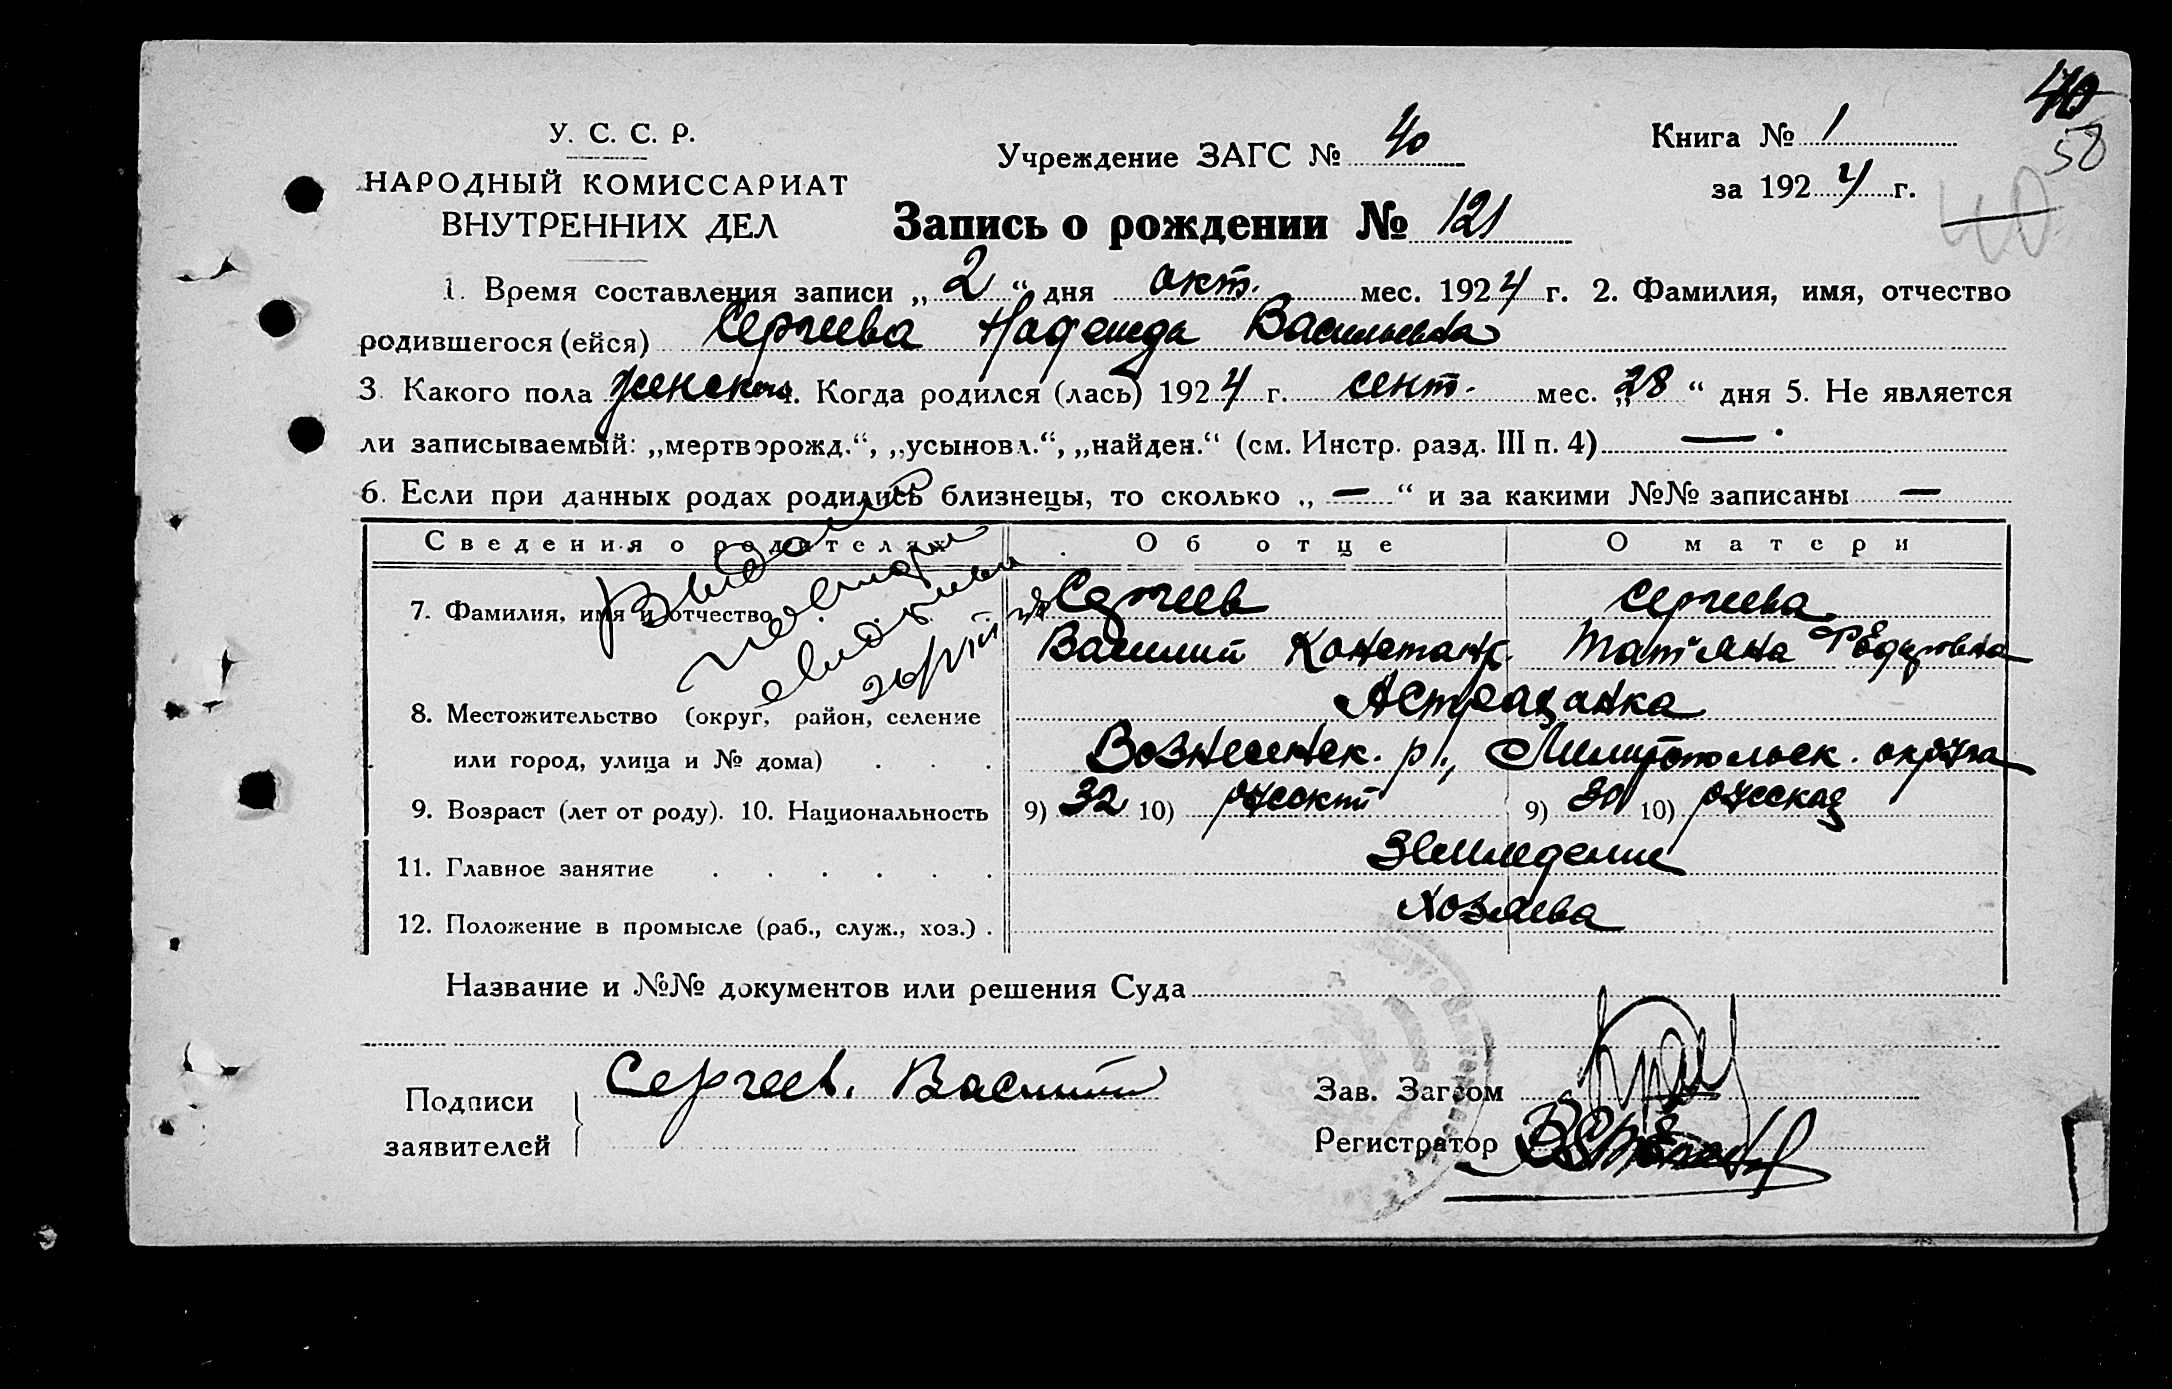 40
58
40
У. С. С. Р.
НАРОДНЫЙ КОМИССАРИАТ
ВНУТРЕННИХ ДЕЛ
Учреждение ЗАГС № 40
Книга № 1
за 1924 г.
Запись о рождении № 121
1. Время составления записи „ 2 “ дня окт. мес. 1924 г. 2. Фамилия, имя, отчество
родившегося (ейся) Сергеева Надежда Васильевна
3. Какого пола женск. 4. Когда родился (лась) 1924 г. сент. мес. „28“ дня 5. Не является
ли записываемый: „мертворожд.“, „усыновл.“, „найден.“ (см. Инстр. разд. III п. 4) —
6. Если при данных родах родились близнецы, то сколько „ — “ и за какими №№ записаны —
Сведения о родителях Об отце О матери
7. Фамилия, имя и отчество Сергеев Сергеева
Василий Констант. Татьяна Федоровна
8. Местожительство (округ, район, селение Астраханка
или город, улица и № дома) . . . Вознесенск. р., Мелитопольск. округа
9. Возраст (лет от роду). 10. Национальность 9) 32 10) русский 9) 30 10) русская
11. Главное занятие . . . . . . Земледелие
12. Положение в промысле (раб., служ., хоз.) . Хозяева
Название и №№ документов или решения Суда
Подписи
заявителей
Сергеев. Василий
Зав. Загсом
Регистратор